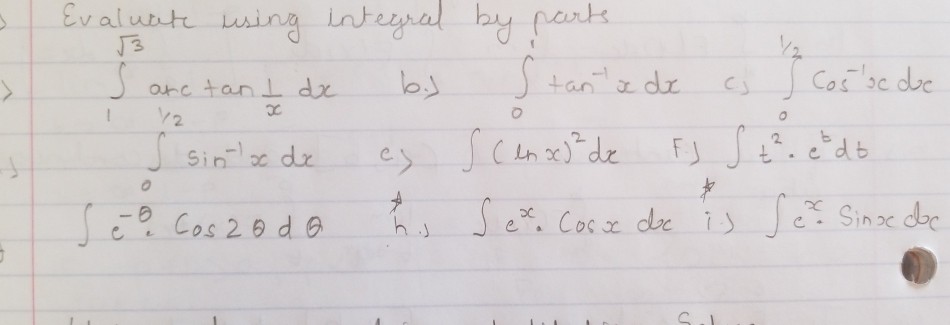 Evaluate using integral by parts
∫₁^√3 arc tan 1/x dx b.) ∫₀¹ tan⁻¹ x dx c) ∫₀^1/2 Cos⁻¹x dx
∫₀^1/2 sin⁻¹ x dx e) ∫ (ln x)² dx F.) ∫ t² . eᵗ dt
∫ e^-θ . Cos 2θ dθ h.) ∫ eˣ . Cos x dx i.) ∫ eˣ . Sinx dx